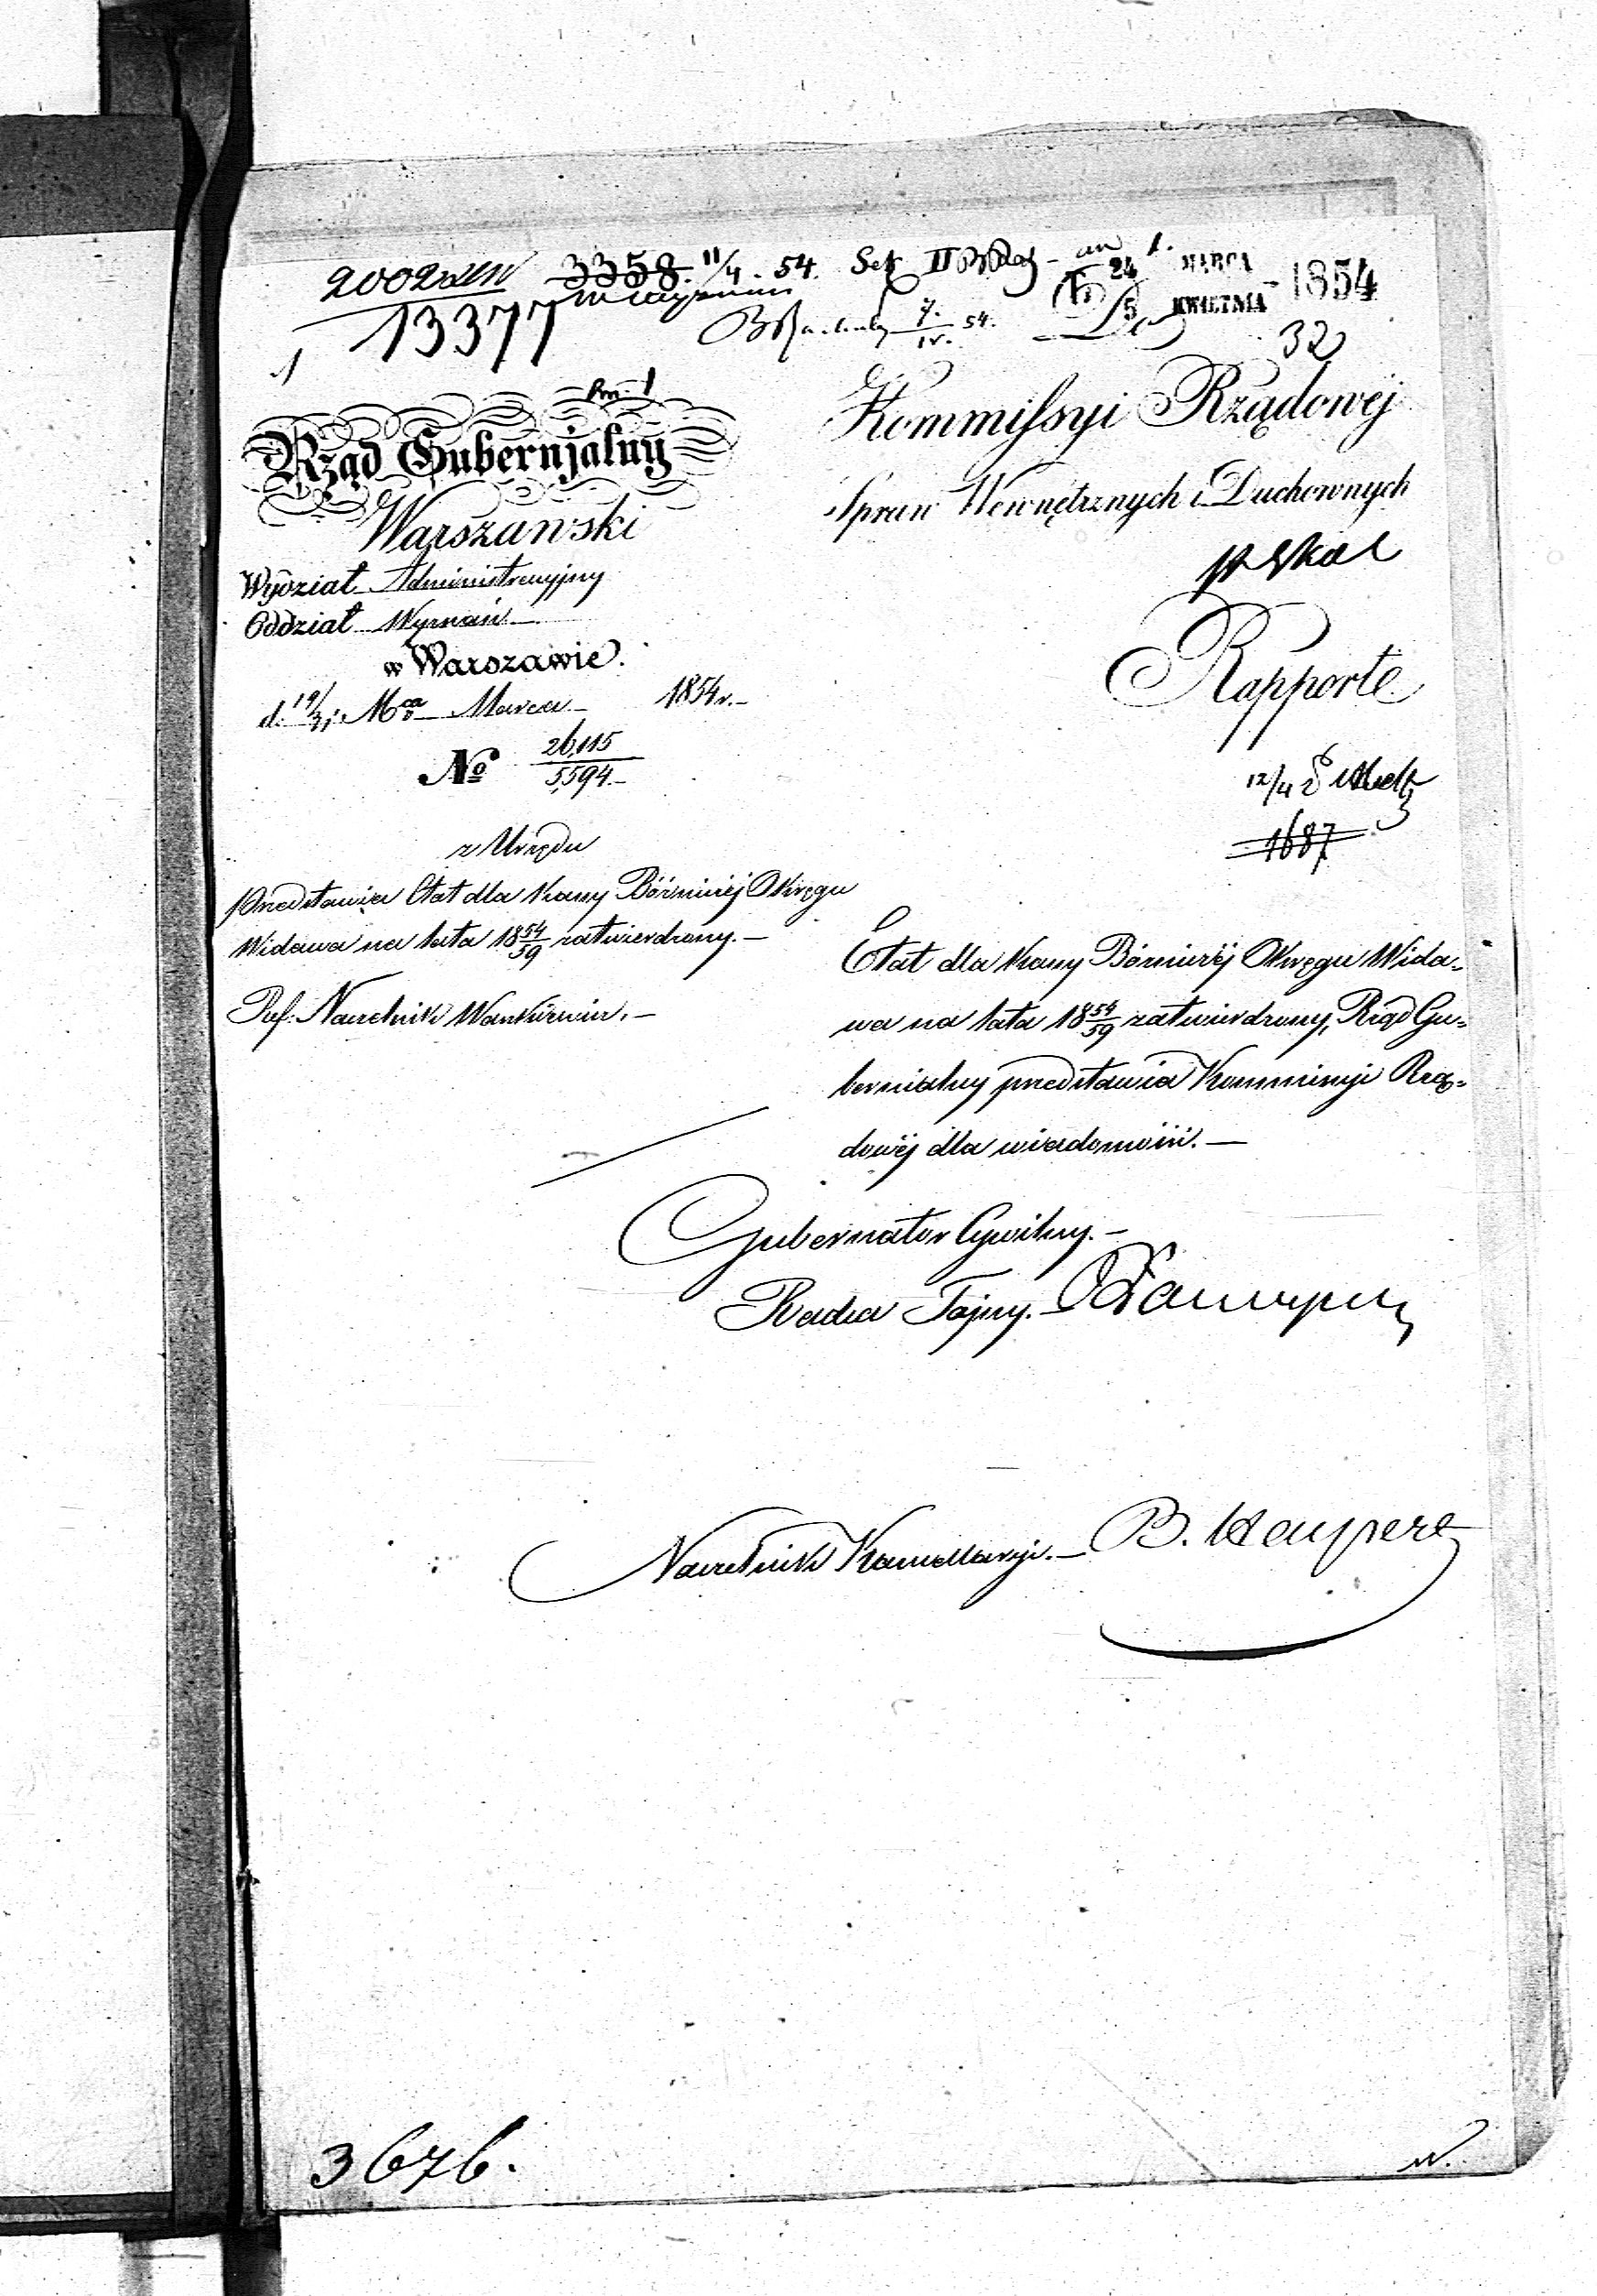 3358. 11/4. 54.
24 MARCA 1854
5 KWIETNIA
13377
7./IV. 54.
32
1
Rząd Gubernjalny
Warszawski
Wydział Administracyjny
Oddział Wyznań
w Warszawie.
d. 19/31 Mca Marca 1854 r.
No 26,115/5,594.
z Urzędu
Przedstawia Etat dla Kassy Bóżniczéj Okręgu
Widawa na lata 18 54/59 zatwierdzony.
Ref: Naczelnik Wankiewicz.
Kommissyi Rządowéj
Spraw Wewnętrznych i Duchownych
Rapport
12/4
1687
Etat dla Kassy Bóźniczéj Okręgu Wida=
wa na lata 18 54/59 zatwierdzony, Rząd Gu=
bernialny przedstawia Kommissyi Rzą=
dowéj dla wiadomości.
Gubernator Cywilny.
Radca Tajny.
Naczelnik Kancellaryi.
3676.